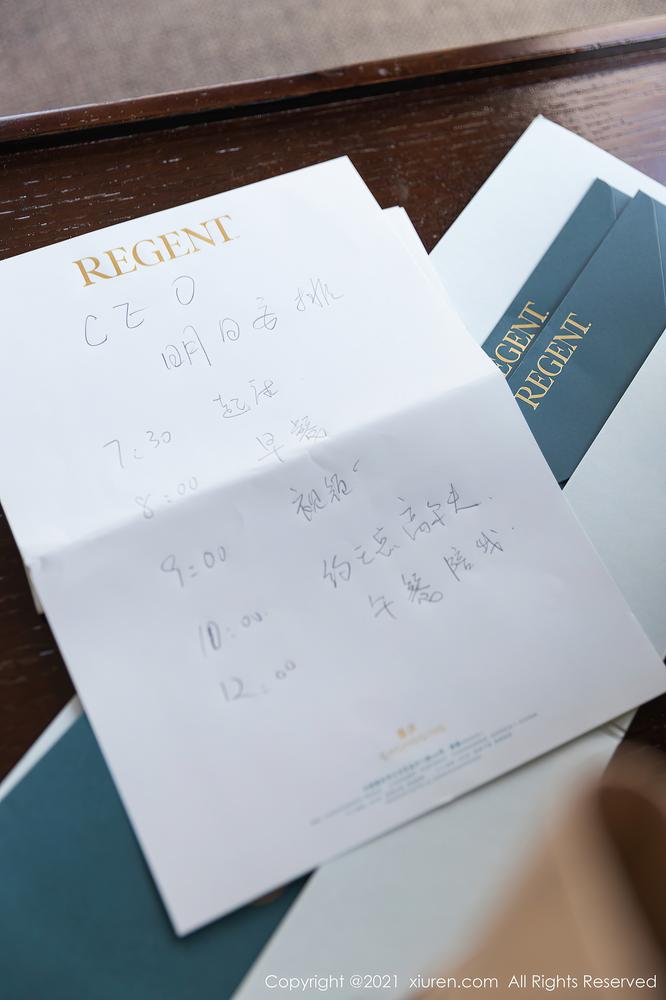 REGENT
CEO
明日安排
7:30 起床
8:00 早餐
9:00 视频
10:00 约王总高尔夫.
12:00 午餐 陪我.
REGENT
REGENT
Copyright @2021 xiuren.com All Rights Reserved